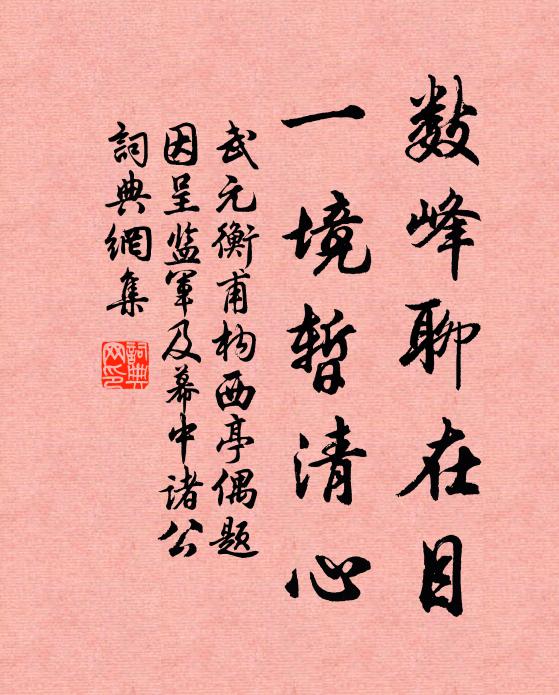 数峰聊在目
一境暂清心
武元衡甫构西亭偶题
因呈监军及幕中诸公
詞典網集
詞典
网印